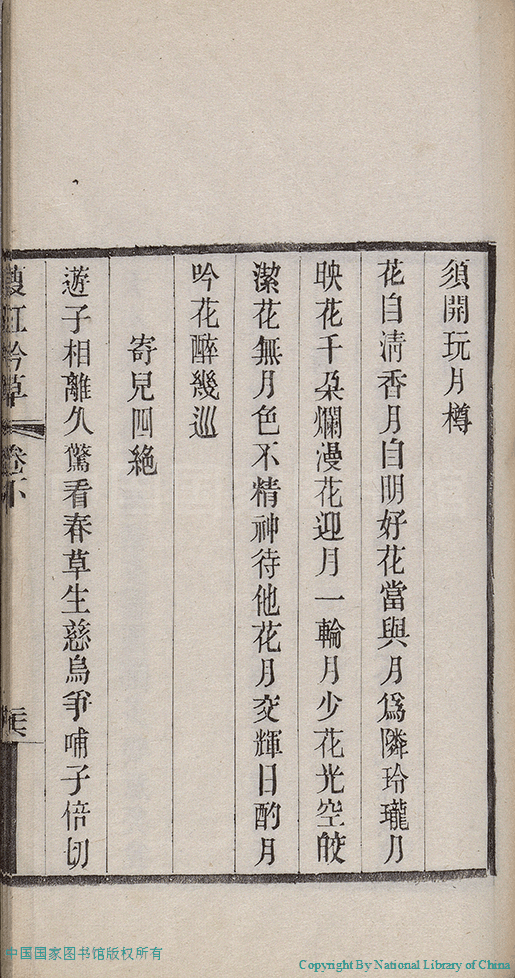 須開玩月樽
花自清香月自明好花當與月爲隣玲瓏月
映花千朶爛漫花迎月一輪月少花光空皎
潔花無月色不精神待他花月交輝日酌月
吟花醉幾巡
寄兒四絶
遊子相離久驚看春草生慈烏爭哺子倍切
吟草
卷下
中国国家图书馆版权所有
Copyright By National Library of China